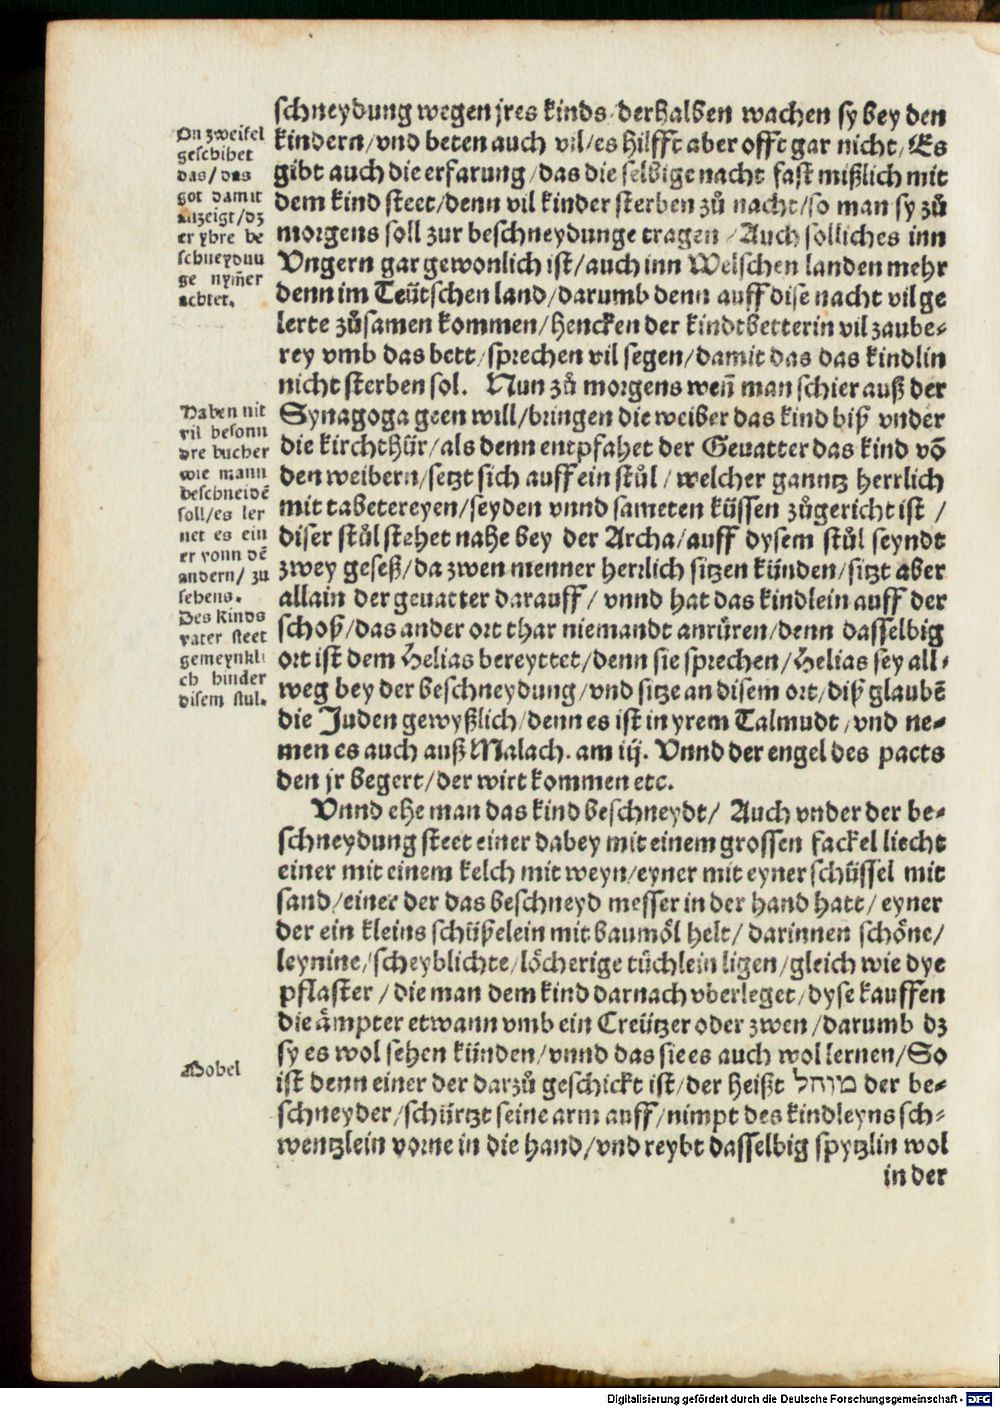 schneydung wegen jres kinds / derhalben wachen sy bey den
kindern / vnd beten auch vil / es hilfft aber offt gar nicht / Es
gibt auch die erfarung / das die selbige nacht fast mißlich mit
dem kind steet / denn vil kinder sterben zů nacht / so man sy zů
morgens soll zur beschneydunge tragen / Auch solliches inn
Vngern gar gewonlich ist / auch inn Welschen landen mehr
denn im Teütschen land / darumb denn auff dise nacht vil ge
lerte zůsamen kommen / hencken der kindtbetterin vil zaube-
rey vmb das bett / sprechen vil segen / damit das das kindlin
nicht sterben sol. Nun zů morgens weñ man schier auß der
Synagoga geen will / bringen die weiber das kind biß vnder
die kirchthür / als denn entpfahet der Geuatter das kind võ
den weibern / setzt sich auff ein stůl / welcher ganntz herrlich
mit tabetereyen / seyden vnnd sameten küssen zůgericht ist /
diser stůl stehet nahe bey der Archa / auff dysem stůl seyndt
zwey geseß / da zwen menner herrlich sitzen künden / sitzt aber
allain der geuatter darauff / vnnd hat das kindlein auff der
schoß / das ander ort thar niemandt anrüren / denn dasselbig
ort ist dem Helias bereyttet / denn sie sprechen / Helias sey all-
weg bey der beschneydung / vnd sitze an disem ort / diß glaubẽ
die Juden gewyßlich / denn es ist in yrem Talmudt / vnd ne-
men es auch auß Malach. am iij. Vnnd der engel des pacts
den jr begert / der wirt kommen etc.
Vnnd ehe man das kind beschneydt / Auch vnder der be-
schneydung steet einer dabey mit einem grossen fackel liecht
einer mit einem kelch mit weyn / eyner mit eyner schüssel mit
sand / einer der das beschneyd messer in der hand hatt / eyner
der ein kleins schüßelein mit baumöl helt / darinnen schöne /
leynine / scheyblichte / löcherige tüchlein ligen / gleich wie dye
pflaster / die man dem kind darnach vberleget / dyse kauffen
die ämpter etwann vmb ein Creützer oder zwen / darumb dz
sy es wol sehen künden / vnnd das sie es auch wol lernen / So
ist denn einer der darzů geschickt ist / der heißt מוהל der be-
schneyder / schürtzt seine arm auff / nimpt des kindleyns sch-
wentzlein vorne in die hand / vnd reybt dasselbig spytzlin wol
in der
On zweifel
geschihet
das / das
got damit
anzeigt / dz
er yhre be
schneydun
ge nym̃er
achtet.
Haben nit
vil besonn
dre bucher
wie mann
beschneidẽ
soll / es ler
net es ein
er vonn dẽ
andern / zu
sehens.
Des kinds
vater steet
gemeynkli
ch hinder
disem stul.
Mobel
Digitalisierung gefördert durch die Deutsche Forschungsgemeinschaft - DFG